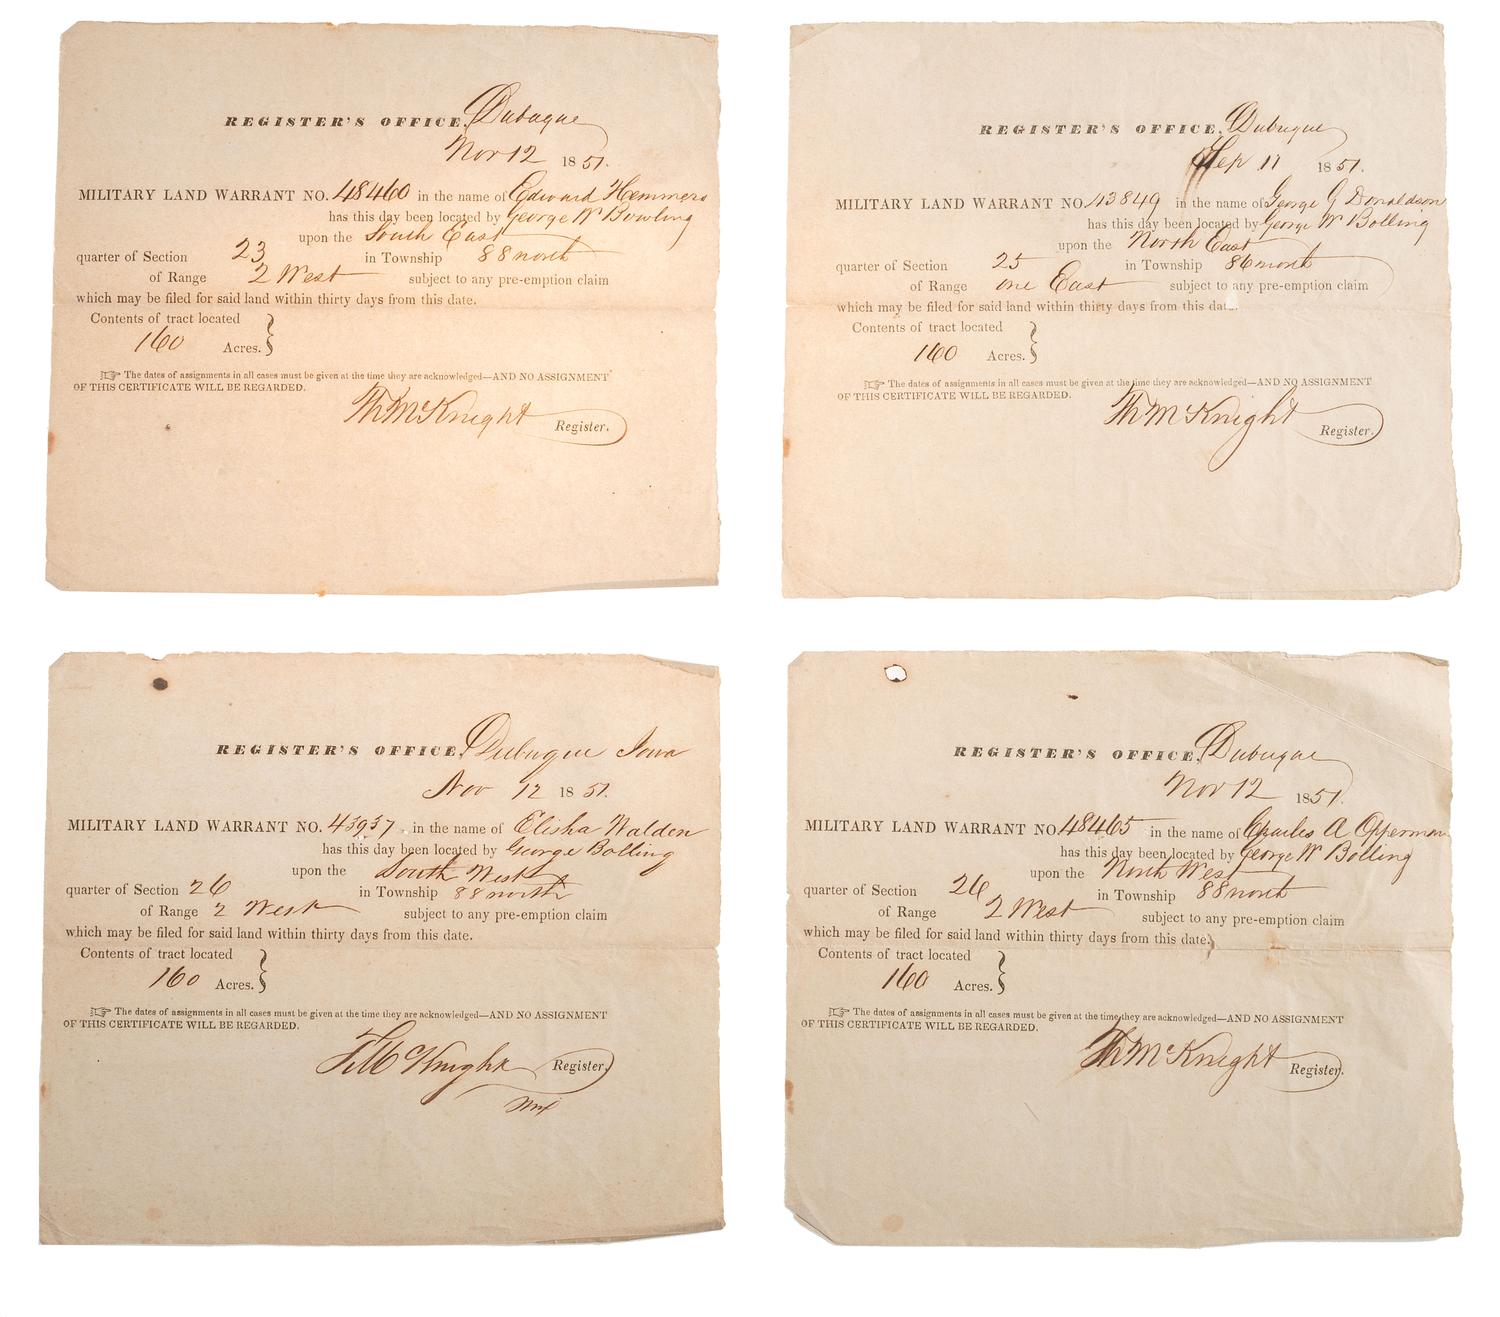 REGISTER'S OFFICE, Dubuque
Nov 12 1851.
MILITARY LAND WARRANT NO. 48460 in the name of Edward Hemmers
has this day been located by George W Bowling
upon the South East
quarter of Section 23 in Township 88 north
of Range 2 West subject to any pre-emption claim
which may be filed for said land within thirty days from this date.
Contents of tract located
160 Acres.
☞ The dates of assignments in all cases must be given at the time they are acknowledged—AND NO ASSIGNMENT
OF THIS CERTIFICATE WILL BE REGARDED.
Th McKnight Register.
REGISTER'S OFFICE, Dubuque
Sep 11 1851.
MILITARY LAND WARRANT NO. 13849 in the name of George G Donaldson
has this day been located by George W Bolling
upon the North East
quarter of Section 25 in Township 86 north
of Range one East subject to any pre-emption claim
which may be filed for said land within thirty days from this dat
Contents of tract located
160 Acres.
☞ The dates of assignments in all cases must be given at the time they are acknowledged—AND NO ASSIGNMENT
OF THIS CERTIFICATE WILL BE REGARDED.
Th McKnight Register.
REGISTER'S OFFICE, Dubuque Iowa
Nov 12 1851.
MILITARY LAND WARRANT NO. 43937 in the name of Elisha Walden
has this day been located by George Bolling
upon the South West
quarter of Section 26 in Township 88 north
of Range 2 West subject to any pre-emption claim
which may be filed for said land within thirty days from this date.
Contents of tract located
160 Acres.
☞ The dates of assignments in all cases must be given at the time they are acknowledged—AND NO ASSIGNMENT
OF THIS CERTIFICATE WILL BE REGARDED.
McKnight Register.
REGISTER'S OFFICE, Dubuque
Nov 12 1851.
MILITARY LAND WARRANT NO. 48465 in the name of Charles A Opperman
has this day been located by George W Bolling
upon the North West
quarter of Section 26 in Township 88 north
of Range 2 West subject to any pre-emption claim
which may be filed for said land within thirty days from this date.
Contents of tract located
160 Acres.
☞ The dates of assignments in all cases must be given at the time they are acknowledged—AND NO ASSIGNMENT
OF THIS CERTIFICATE WILL BE REGARDED.
Th McKnight Register.